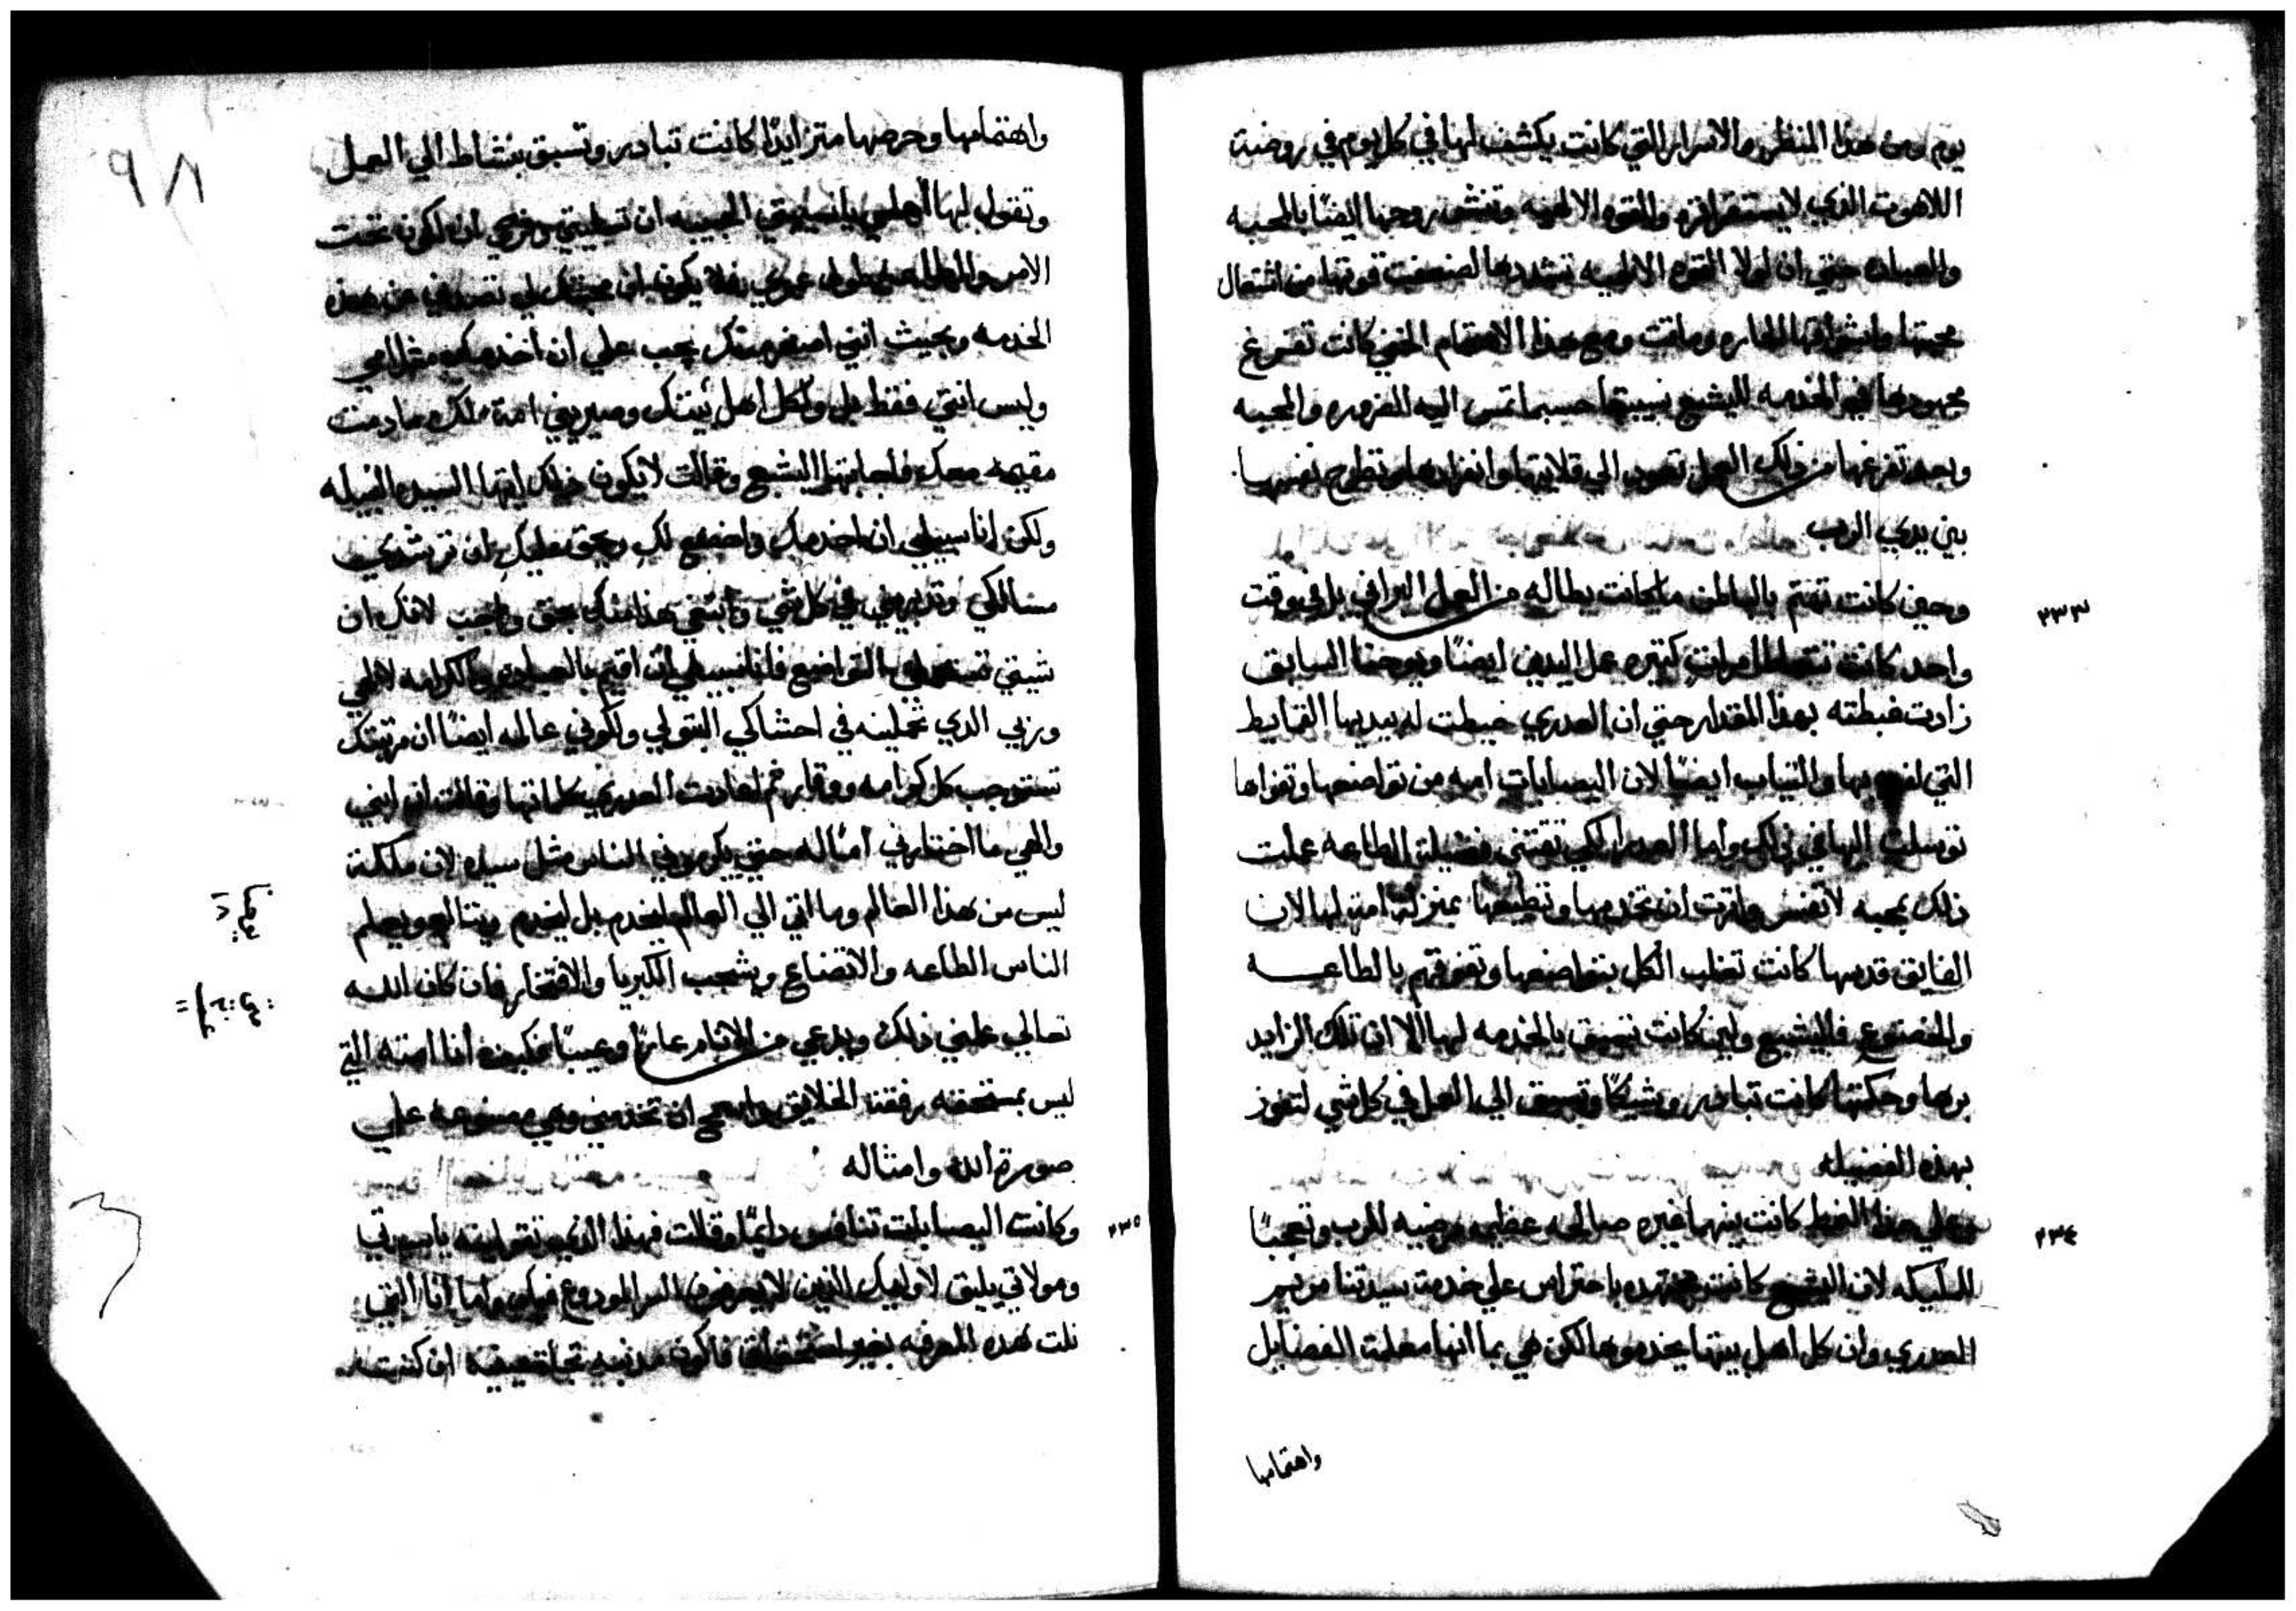 يوم ومن هذا المنظر والاسرار التي كانت يكشف لها في كل يوم في روضة
اللاهوت الذي لا يستقر اثره والقوه الالهيه وتنتشي روحها ايضًا بالمحبه
والعباده حتي ان لولا القوه الالهيه تشددها لضعفت قوتها من اشتعال
محبتها واشواقها الحاره وماتت ومع هذا الاهتمام الخفي كانت تفرغ
مجهودها في الخدمه لاليشبع نسيبتها حسبما تمس اليه الضروره والمحبه
وبعد تفرغها من ذلك العمل تعود الي قلايتها وانفرادها وتطرح نفسها
بين يدي الرب
٢٣٣
وحين كانت تهتم بالباطن ما كانت بطاله من العمل البراني بل في وقت
واحد كانت تتعاطا مرات كتيره عمل اليدين ايضًا ويوحنا السابق
زادت غبطته بهذا المقدار حتي ان العدري خيطت له بيديها القمايط
التي بها والتياب ايضًا لان اليصابات امه من تواضعها وتقواها
توسلت اليها في ذلك واما العدرا لكي تقتني فضيلة الطاعه عملت
ذلك بمحبه لا تفسر وارادت ان تخدمها وتطيعها بمنزلة امة لها لان
الفايق قدسها كانت تغلب الكل بتواضعها وتفوقهم بالطاعه
والخضوع فاليشبع ولين كانت تسبق بالخدمه لها الا ان تلك الزايد
برها وحكمتها كانت تبادر وشيكًا وتسبق الي العمل في كل شي لتفوز
بهذه الفضيله
٢٣٤
وعلي هذا النمط كانت بينهما غيره صالحه عظيمه مرضيه للرب وتعجبًا
للمليكه لان اليشبع كانت مجتهده باحتراس علي خدمة سيدتنا مريم
العدري وان كل اهل بيتها يخدموها لكن هي بما انها معلمة الفضايل
واهتمامها
٩٨
واهتمامها وحرصها متزايدًا كانت تبادر وتسبق بنشاط الي العمل
وتقول لها اهلي يا نسيبتي الحبيبه ان تطيبي وفرحي ان اكون تحت
الامر والطاعه طول عمري فلا يكون ان محبتك لي تصدني عن هذه
الخدمه وبحيث انني اصغر منك يجب علي ان اخدمك مثل امي
وليس انتي فقط بل ولكل اهل بيتك وصيريني امة لك ما دمت
مقيمه معك فاجابتها اليشبع وقالت لا يكون ذلك ايتها السيده النبيله
ولكن انا سبيلي ان اخدمك واخضع لك ويحق عليك ان ترشدي
مسالكي وتدبريني في كل شي وابتغي هذا منك بحق واجب لانك ان
شيتي تستعملي التواضع فانا سبيلي ان اقيم بالعباده والكرامه لالهي
وربي الدي تحملينه في احشاكي البتولي ولكوني عالمه ايضًا ان مرتبتك
تستوجب كل كرامه ووقار ثم اعادت العدري كلماتها وقالت ان ابني
والهي ما اختارني اما له حتي يكرموني الناس مثل سيده لان ملكه
ليس من هذا العالم وما اتي الي العالم ليخدم بل ليخدم ويتالم ويعلم
الناس الطاعه والاتضاع ويشجب الكبريا والافتخار فان كان الله
تعالي علمني ذلك ويدعي من الانام عارًا وعيبًا فكيف انا امته التي
ليس بمستحقه رفقة الخلايق ان تخدمني وهي مصنوعه علي
صورة الله وامثاله
٢٣٥
وكانت اليصابات تنافس دايمًا وقالت فهذا الذي تقولينه يا سيدتي
ومولاتي يليق لاوليك الذين لا يعرفون السر المودوع فيك واما انا التي
نلت هذه المعرفه بغير استحقاق فاكون مدنبه ان كنت